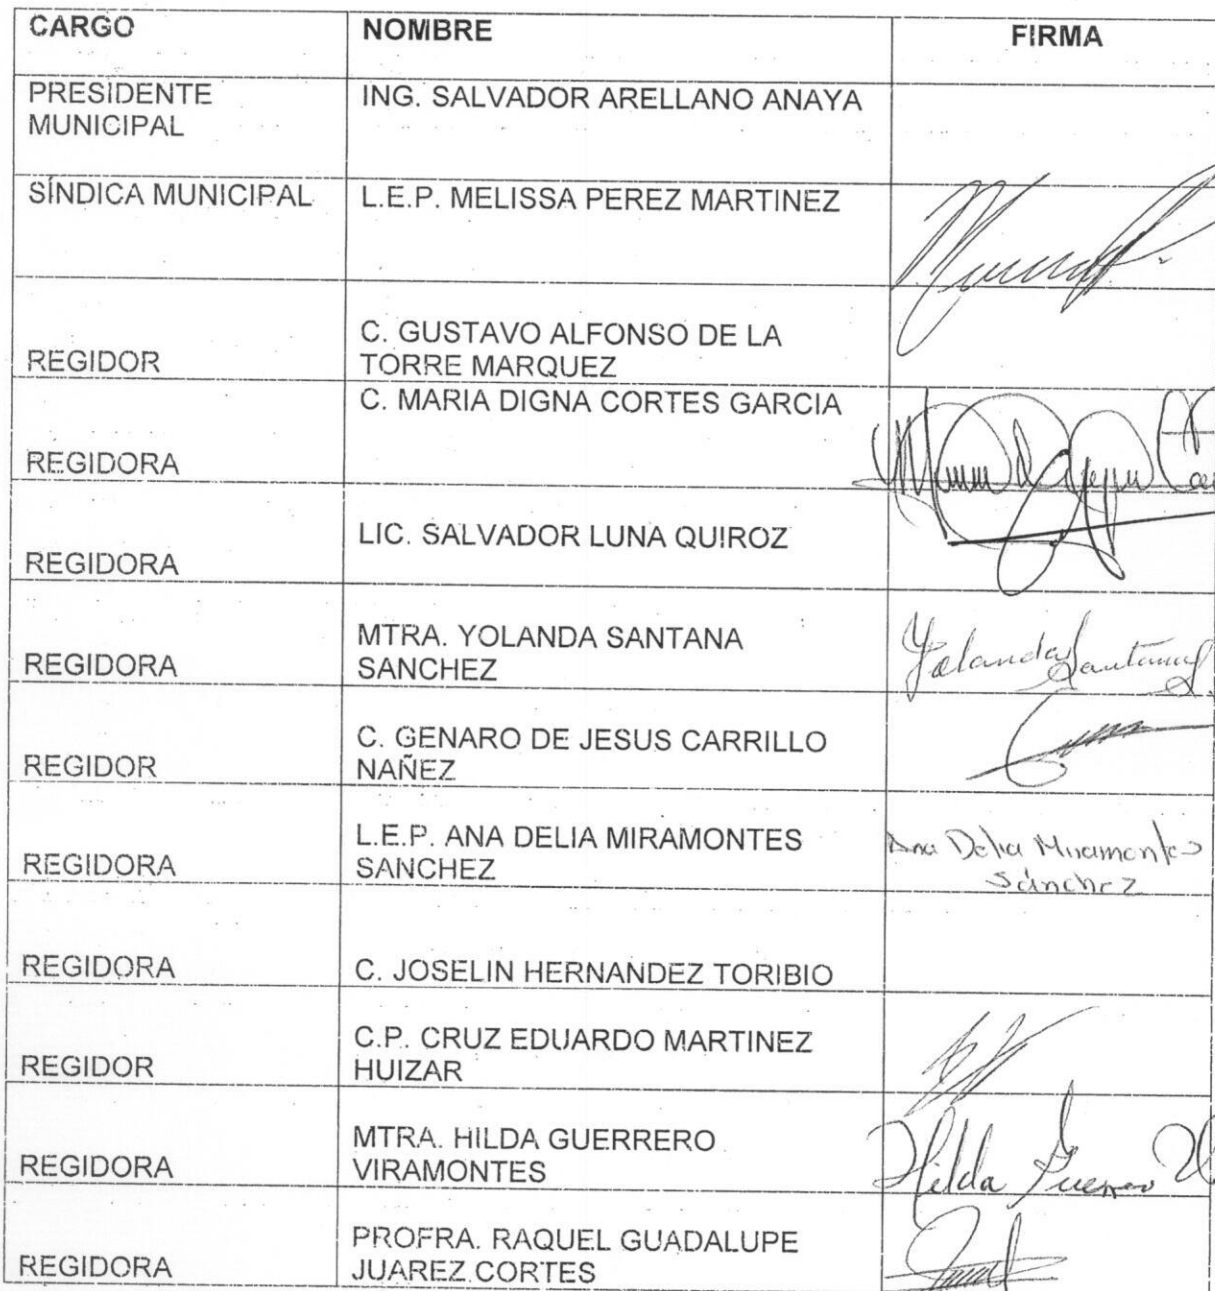 CARGO NOMBRE FIRMA
PRESIDENTE MUNICIPAL ING. SALVADOR ARELLANO ANAYA
SÍNDICA MUNICIPAL L.E.P. MELISSA PEREZ MARTINEZ
REGIDOR C. GUSTAVO ALFONSO DE LA TORRE MARQUEZ
REGIDORA C. MARIA DIGNA CORTES GARCIA
REGIDORA LIC. SALVADOR LUNA QUIROZ
REGIDORA MTRA. YOLANDA SANTANA SANCHEZ Yolanda Santana S.
REGIDOR C. GENARO DE JESUS CARRILLO NAÑEZ
REGIDORA L.E.P. ANA DELIA MIRAMONTES SANCHEZ Ana Delia Miramontes Sánchez
REGIDORA C. JOSELIN HERNANDEZ TORIBIO
REGIDOR C.P. CRUZ EDUARDO MARTINEZ HUIZAR
REGIDORA MTRA. HILDA GUERRERO VIRAMONTES Hilda Guerrero V
REGIDORA PROFRA. RAQUEL GUADALUPE JUAREZ CORTES